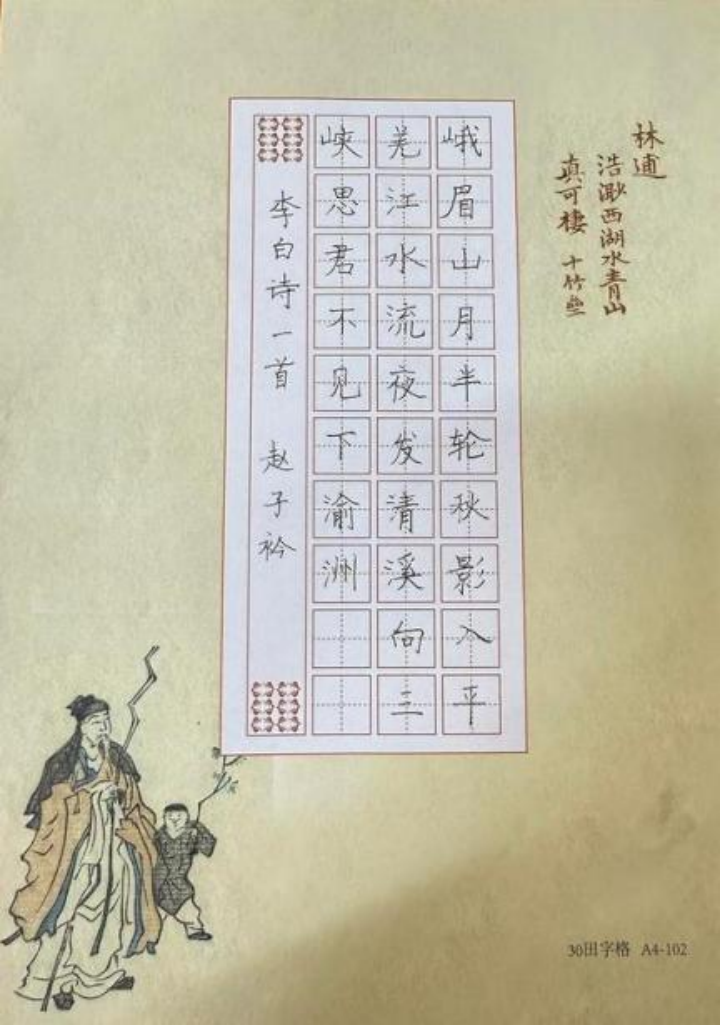 林逋
浩渺西湖水青山
真可棲 十竹亝
峨眉山月半轮秋影入平
羌江水流夜发清溪向三
峡思君不见下渝洲
李白诗一首 赵子衿
30田字格 A4-102